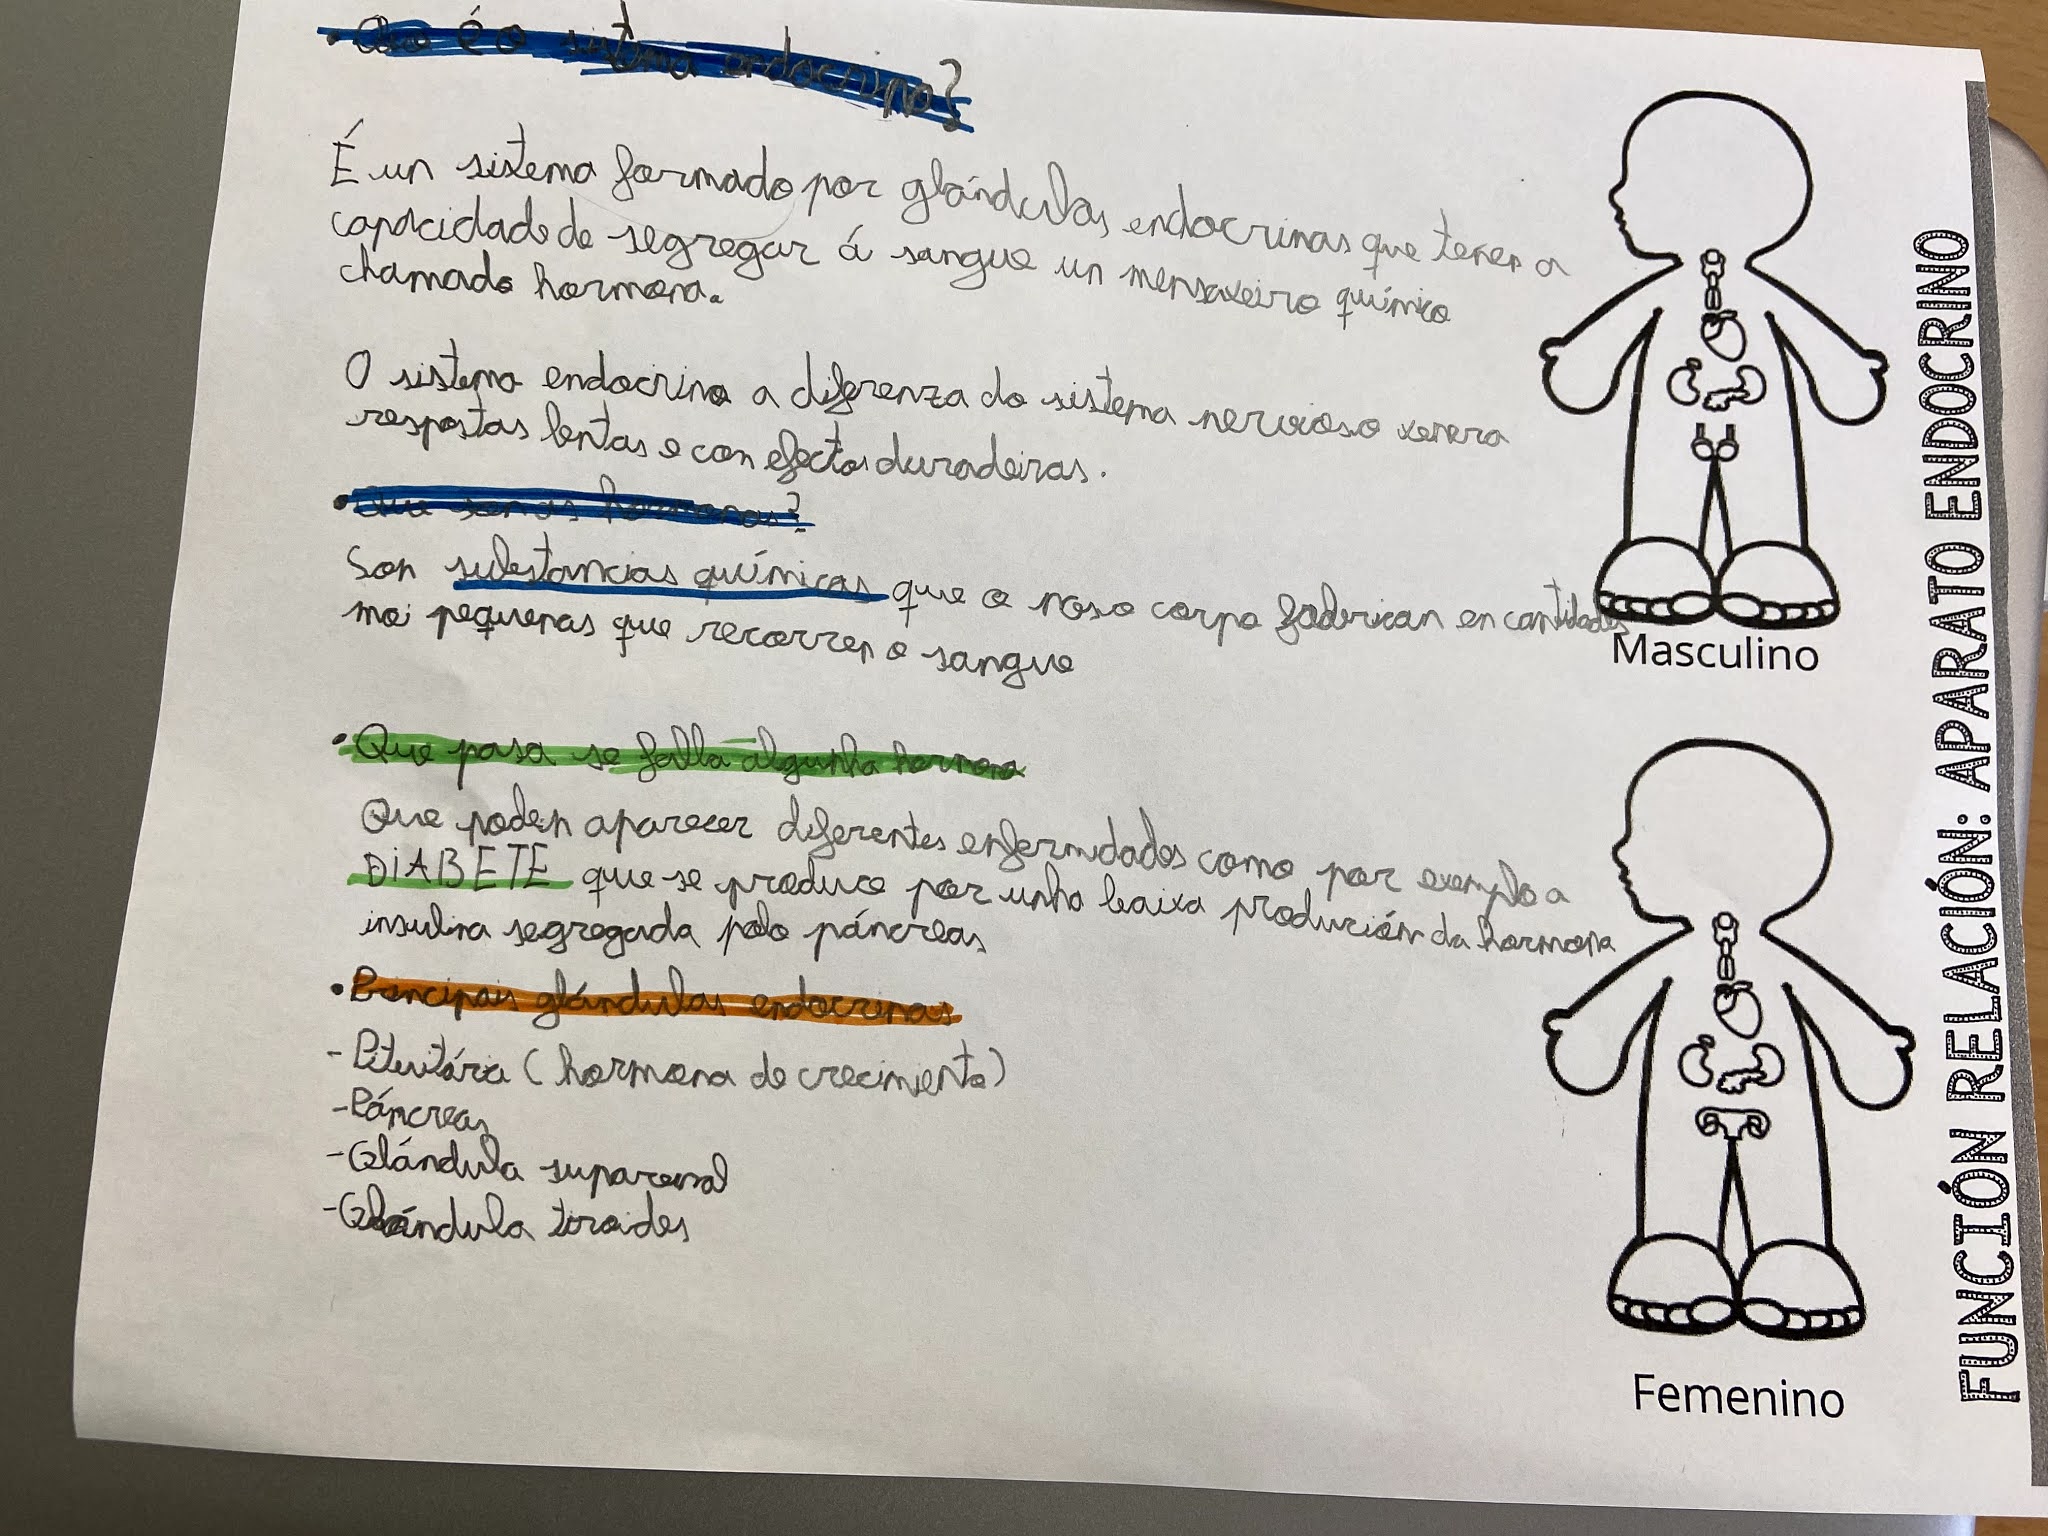 é o sistema endocrino?
É un sistema formado por glándulas endocrinas que tenen a
capacidade de segregar á sangue un mensaxeiro químico
chamado hormona.
O sistema endocrino a diferenza do sistema nervioso xenera
respostas lentas e con efectos duradeiras.
• Que son as hormonas?
Son substancias químicas que o noso corpo faberican en cantidades
moi pequenas que recorren o sangue
• Que pasa se falla algunha hormona
Que poden aparecer diferentes enfermidades como por exemplo a
DIABETE que se produce por unha baixa produción da hormona
insulina segregada polo páncreas
• Principais glándulas endocrinas
- Pituitária (hormona de crecimiento)
- Páncreas
- Glándula suparenal
- Glándula toroides
Masculino
Femenino
FUNCIÓN RELACIÓN: APARATO ENDOCRINO